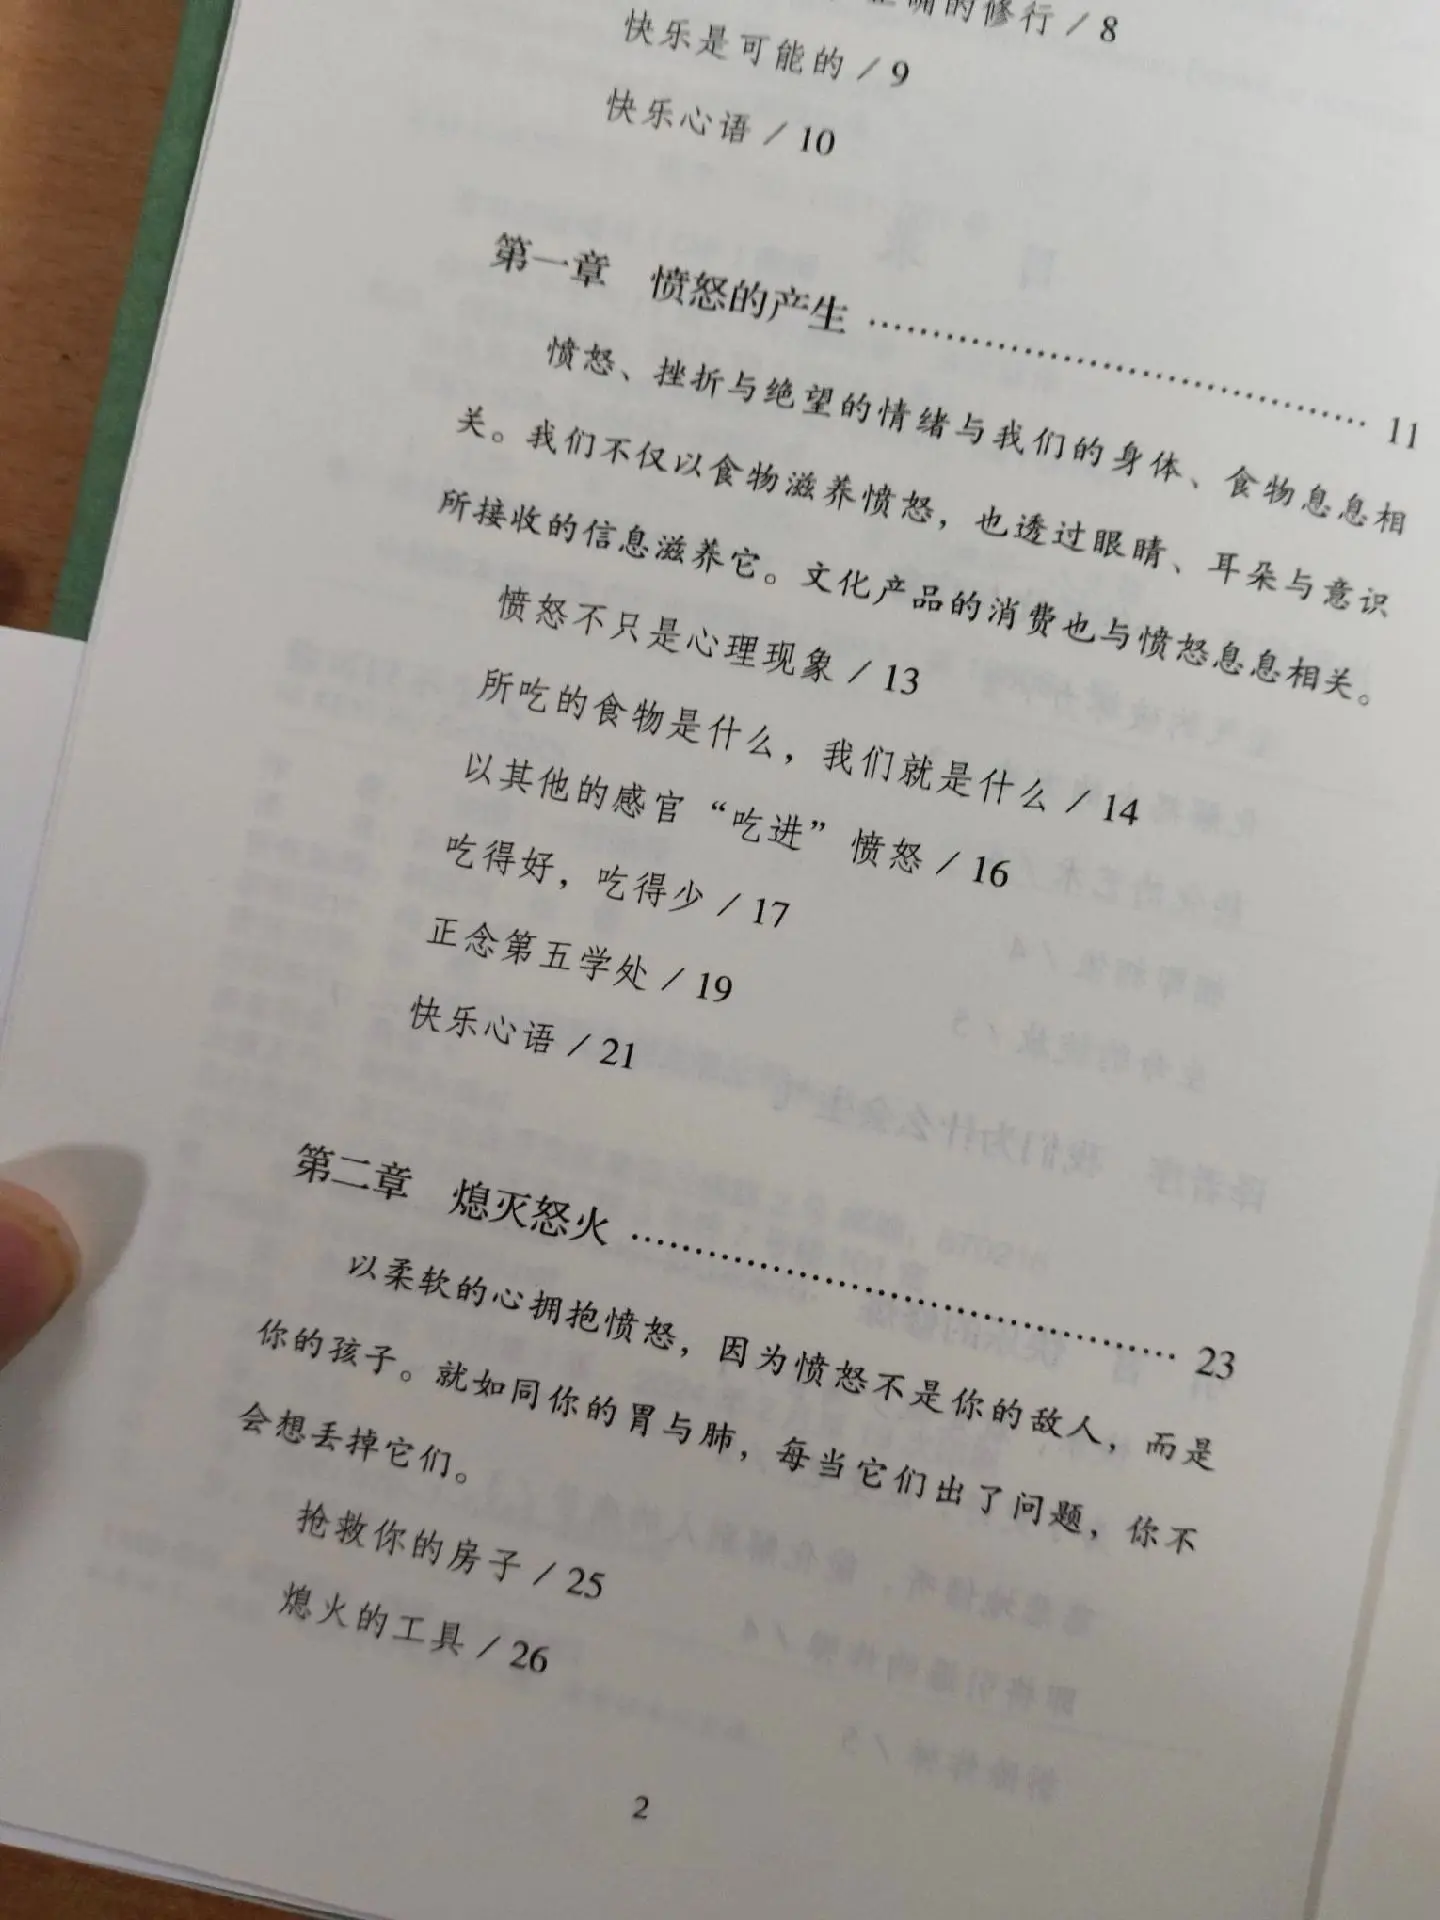 确的修行 / 8
快乐是可能的 / 9
快乐心语 / 10
第一章 愤怒的产生 …………………………………… 11
愤怒、挫折与绝望的情绪与我们的身体、食物息息相
关。我们不仅以食物滋养愤怒，也透过眼睛、耳朵与意识
所接收的信息滋养它。文化产品的消费也与愤怒息息相关。
愤怒不只是心理现象 / 13
所吃的食物是什么，我们就是什么 / 14
以其他的感官“吃进”愤怒 / 16
吃得好，吃得少 / 17
正念第五学处 / 19
快乐心语 / 21
第二章 熄灭怒火 …………………………………… 23
以柔软的心拥抱愤怒，因为愤怒不是你的敌人，而是
你的孩子。就如同你的胃与肺，每当它们出了问题，你不
会想丢掉它们。
抢救你的房子 / 25
熄火的工具 / 26
2